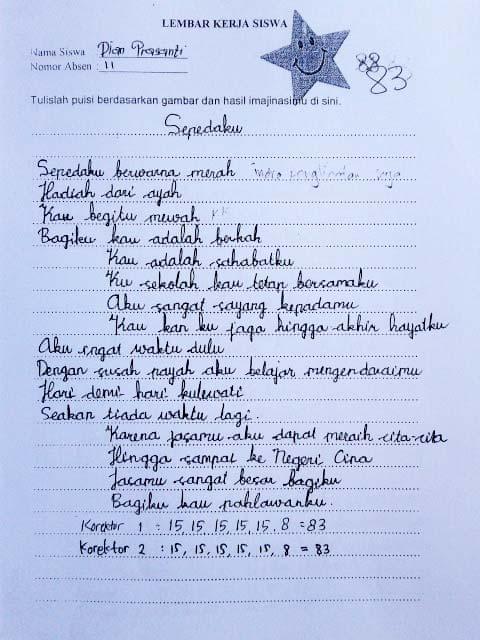 LEMBAR KERJA SISWA
Nama Siswa : Dian Prasanti
Nomor Absen : 11
88
83
Tulislah puisi berdasarkan gambar dan hasil imajinasimu di sini.
Sepedaku
Sepedaku berwarna merah
Hadiah dari ayah
Kau begitu mewah
Bagiku kau adalah berkah
Kau adalah sahabatku
Ku sekolah kau tetap bersamaku
Aku sangat sayang kepadamu
Kau kan ku jaga hingga akhir hayatku
Aku ingat waktu dulu
Dengan susah payah aku belajar mengendaraimu
Hari demi hari kulewati
Seakan tiada waktu lagi.
Karena jasamu aku dapat meraih cita-cita
Hingga sampai ke Negeri Cina
Jasamu sangat besar bagiku
Bagiku kau pahlawanku.
Korektor 1 : 15, 15, 15, 15, 15, 8 = 83
Korektor 2 : 15, 15, 15, 15, 15, 8 = 83